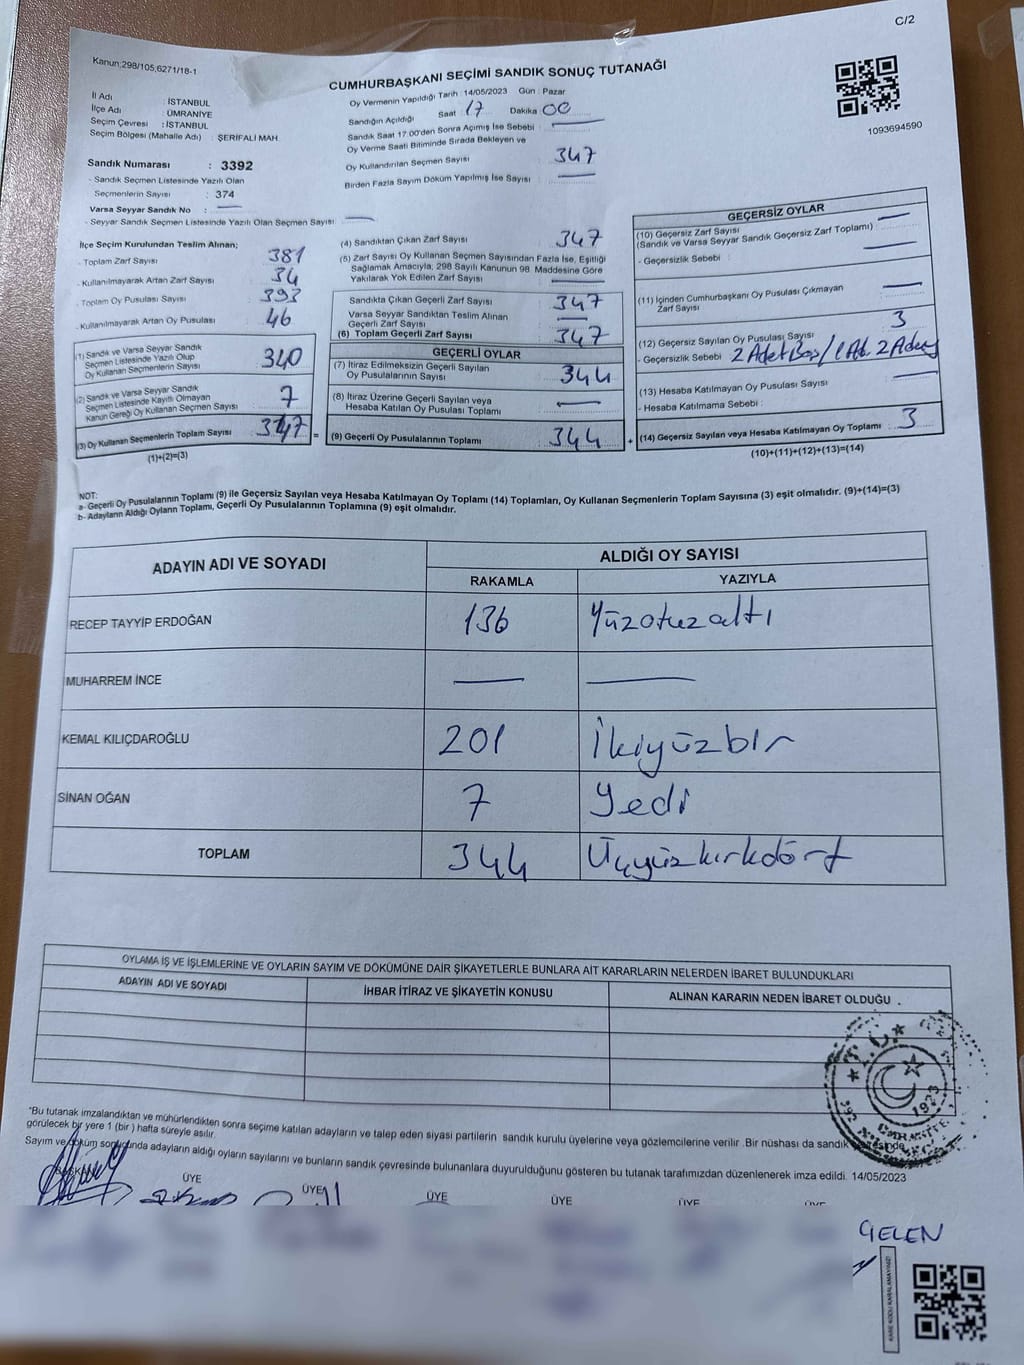 C/2
Kanun;298/105,6271/18-1
CUMHURBAŞKANI SEÇİMİ SANDIK SONUÇ TUTANAĞI
1093694590
İl Adı : İSTANBUL
İlçe Adı : ÜMRANİYE
Seçim Çevresi : İSTANBUL
Seçim Bölgesi (Mahalle Adı) : ŞERİFALİ MAH.
Sandık Numarası : 3392
- Sandık Seçmen Listesinde Yazılı Olan
Seçmenlerin Sayısı : 374
Varsa Seyyar Sandık No :
- Seyyar Sandık Seçmen Listesinde Yazılı Olan Seçmen Sayısı :
Oy Vermenin Yapıldığı Tarih : 14/05/2023 Gün : Pazar
Sandığın Açıldığı Saat 17 Dakika 00
Sandık Saat 17.00'den Sonra Açımış İse Sebebi :
Oy Verme Saati Bitiminde Sırada Bekleyen ve
Oy Kullandırılan Seçmen Sayısı 347
Birden Fazla Sayım Döküm Yapılmış İse Sayısı :
İlçe Seçim Kurulundan Teslim Alınan;
- Toplam Zarf Sayısı 381
- Kullanılmayarak Artan Zarf Sayısı 34
- Toplam Oy Pusulası Sayısı 393
- Kullanılmayarak Artan Oy Pusulası 46
(1) Sandık ve Varsa Seyyar Sandık
Seçmen Listesinde Yazılı Olup
Oy Kullanan Seçmenlerin Sayısı 340
(2) Sandık ve Varsa Seyyar Sandık
Seçmen Listesinde Kayıtlı Olmayan
Kanun Gereği Oy Kullanan Seçmen Sayısı 7
(3) Oy Kullanan Seçmenlerin Toplam Sayısı 347 =
(1)+(2)=(3)
(4) Sandıktan Çıkan Zarf Sayısı 347
(5) Zarf Sayısı Oy Kullanan Seçmen Sayısından Fazla İse, Eşitliği
Sağlamak Amacıyla; 298 Sayılı Kanunun 98. Maddesine Göre
Yakılarak Yok Edilen Zarf Sayısı :
Sandıkta Çıkan Geçerli Zarf Sayısı 347
Varsa Seyyar Sandıktan Teslim Alınan
Geçerli Zarf Sayısı
(6) Toplam Geçerli Zarf Sayısı 347
GEÇERLİ OYLAR
(7) İtiraz Edilmeksizin Geçerli Sayılan
Oy Pusulalarının Sayısı 344
(8) İtiraz Üzerine Geçerli Sayılan veya
Hesaba Katılan Oy Pusulası Toplamı
(9) Geçerli Oy Pusulalarının Toplamı 344 +
GEÇERSİZ OYLAR
(10) Geçersiz Zarf Sayısı
(Sandık ve Varsa Seyyar Sandık Geçersiz Zarf Toplamı)
- Geçersizlik Sebebi :
(11) İçinden Cumhurbaşkanı Oy Pusulası Çıkmayan
Zarf Sayısı
(12) Geçersiz Sayılan Oy Pusulası Sayısı 3
- Geçersizlik Sebebi 2 Adet Boş/1 Ad. 2 Aday
(13) Hesaba Katılmayan Oy Pusulası Sayısı
- Hesaba Katılmama Sebebi :
(14) Geçersiz Sayılan veya Hesaba Katılmayan Oy Toplamı 3
(10)+(11)+(12)+(13)=(14)
NOT:
a- Geçerli Oy Pusulalarının Toplamı (9) ile Geçersiz Sayılan veya Hesaba Katılmayan Oy Toplamı (14) Toplamları, Oy Kullanan Seçmenlerin Toplam Sayısına (3) eşit olmalıdır. (9)+(14)=(3)
b- Adayların Aldığı Oyların Toplamı, Geçerli Oy Pusulalarının Toplamına (9) eşit olmalıdır.
ADAYIN ADI VE SOYADI
ALDIĞI OY SAYISI
RAKAMLA YAZIYLA
RECEP TAYYİP ERDOĞAN 136 Yüzotuzaltı
MUHARREM İNCE
KEMAL KILIÇDAROĞLU 201 İkiyüzbir
SİNAN OĞAN 7 Yedi
TOPLAM 344 Üçyüzkırkdört
OYLAMA İŞ VE İŞLEMLERİNE VE OYLARIN SAYIM VE DÖKÜMÜNE DAİR ŞİKAYETLERLE BUNLARA AİT KARARLARIN NELERDEN İBARET BULUNDUKLARI
ADAYIN ADI VE SOYADI İHBAR İTİRAZ VE ŞİKAYETİN KONUSU ALINAN KARARIN NEDEN İBARET OLDUĞU .
T.C.
1923
*Bu tutanak imzalandıktan ve mühürlendikten sonra seçime katılan adayların ve talep eden siyasi partilerin sandık kurulu üyelerine veya gözlemcilerine verilir .Bir nüshası da sandık çevresinde
görülecek bir yere 1 (bir ) hafta süreyle asılır.
Sayım ve döküm sonucunda adayların aldığı oyların sayılarını ve bunların sandık çevresinde bulunanlara duyurulduğunu gösteren bu tutanak tarafımızdan düzenlenerek imza edildi. 14/05/2023
BAŞKAN ÜYE ÜYE ÜYE ÜYE ÜYE ÜYE
GELEN
KARE KODU KARALAMAYINIZ!